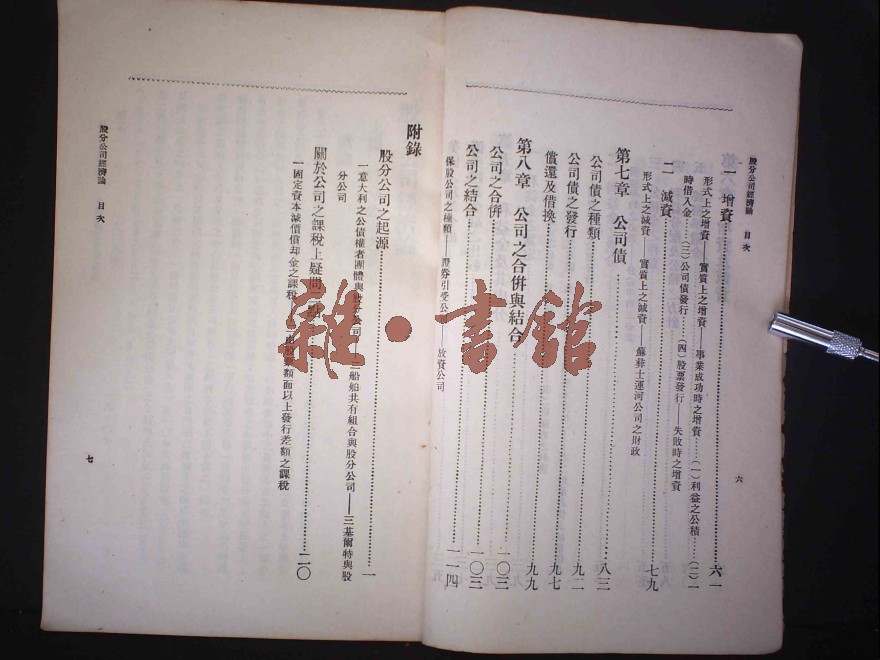 股分公司經濟論 目次
六
一 增資……六一
形式上之增資——實質上之增資——事業成功時之增資……(一)利益之公積……(二)一
時借入金……(三)公司債發行……(四)股票發行——失敗時之增資
二 減資……七九
形式上之減資——實質上之減資——蘇彝士運河公司之財政
第七章 公司債……八三
公司債之種類……八三
公司債之發行……九二
償還及借換……九七
第八章 公司之合併與結合……九九
公司之合併……一〇三
公司之結合……一〇三
保股公司之種類——證券引受公司——放資公司……一一四
附錄
股分公司之起源……一
一意大利之公債權者團體與股分公司——二船舶共有組合與股分公司——三基爾特與股
分公司
關於公司之課稅上疑問二點……二〇
一固定資本減價償却金之課稅——二由股票額面以上發行差額之課稅
股分公司經濟論 目次
七
雜·書館